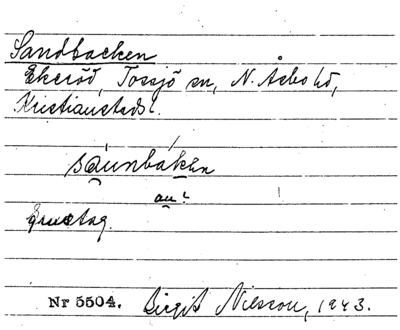 Sandbacken
Ekeröd, Tossjö sn, N. Åsbo hd,
Kristianstads l.
sáunbák̬en
au?
Grustag.
Nr 5504. Birgit Nilsson, 1943.